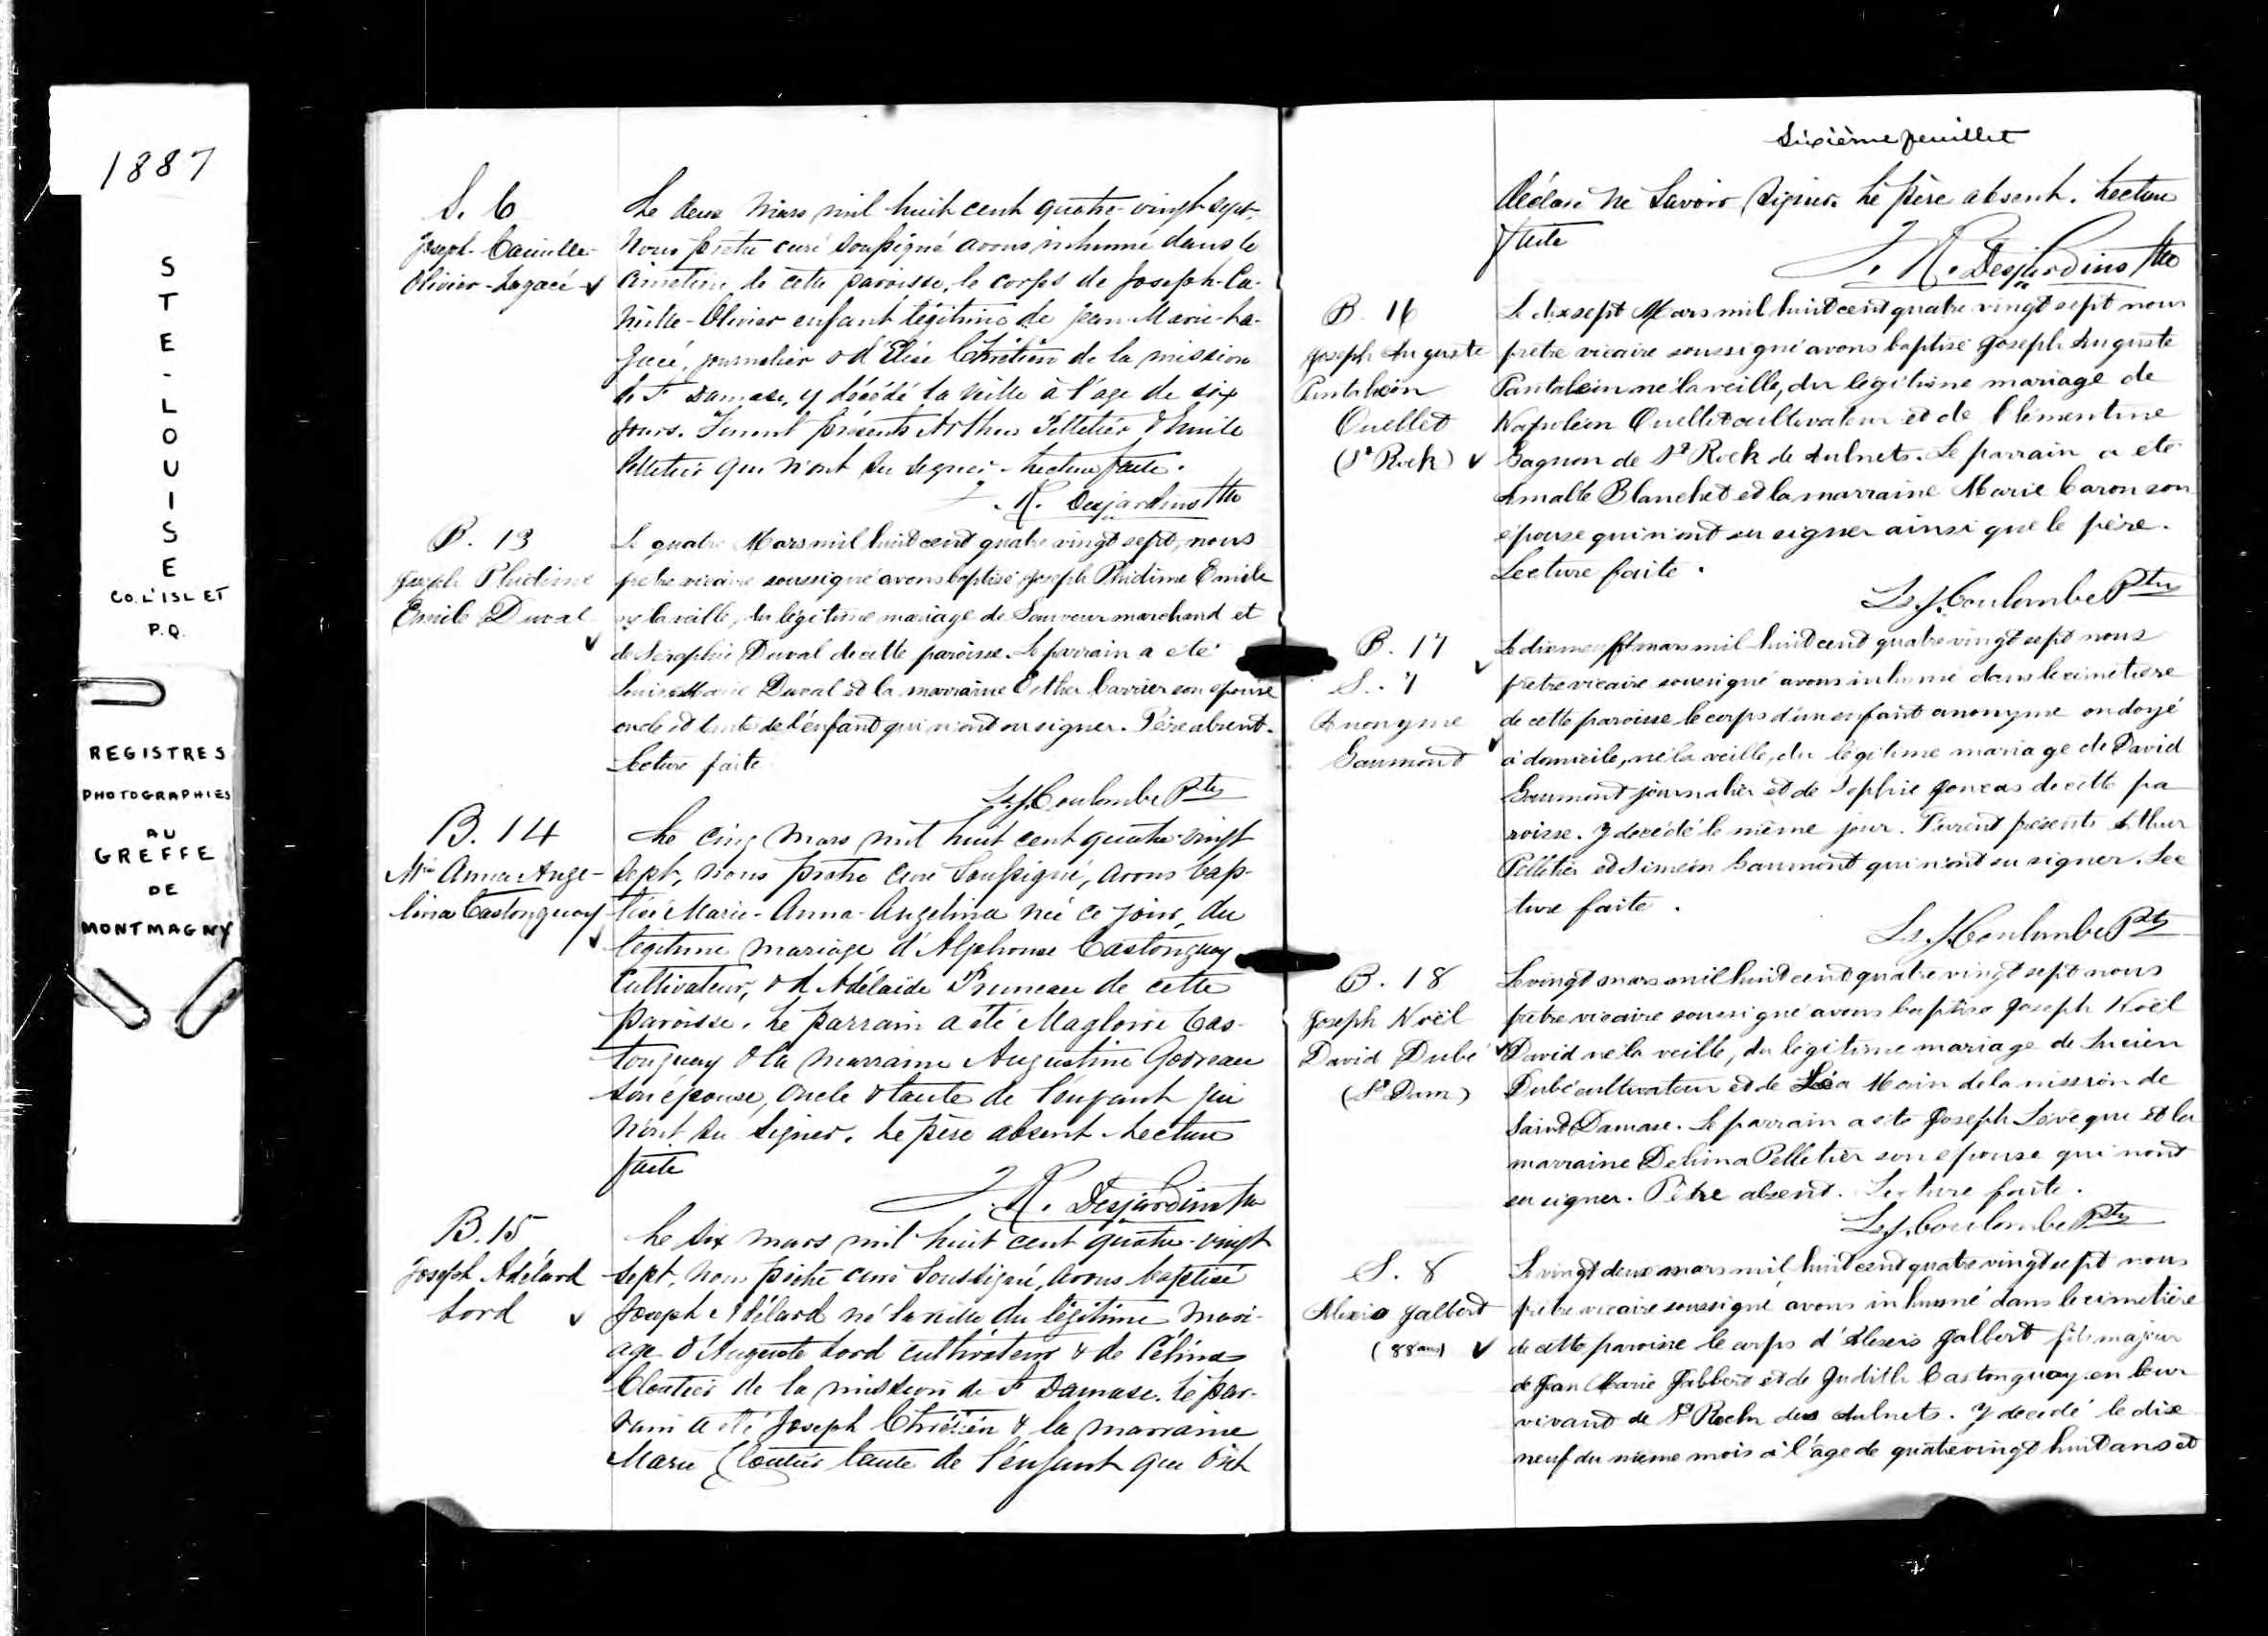 1887
STE-LOUISE
CO. L'ISLET
P.Q.
REGISTRES
PHOTOGRAPHIES
AU
GREFFE
DE
MONTMAGNY
S. 6
Joseph-Camille-
Olivier-Lagacé
Le deux Mars mil huit cent quatre-vingt sept,
Nous prêtre curé soussigné avons inhumé dans le
cimetière de cette paroisse, le corps de Joseph-Ca-
mille-Olivier enfant légitime de Jean-Marie-La-
gacé, journalier & d'Elise Chrétien de la mission
de St Damase, y décédé la veille à l'age de six
jours. Furent présents Arthur Pelletier & Emile
Pelletier qui n'ont su signer. Lecture faite.
J. R. Desjardins Ptre
B. 13
Joseph Phidime
Emile Duval
Le quatre Mars mil huit cent quatre vingt sept, nous
prêtre vicaire soussigné avons baptisé Joseph Phidime Emile
né la veille, du légitime mariage de Sauveur marchand et
de Séraphie Duval de cette paroisse. Le parrain a été
Louis Marie Duval et la marraine Esther Carrier son épouse
oncle et tante de l'enfant qui n'ont su signer. Père absent.
Lecture faite
Ls J. Coulombe Ptre
B. 14
Mie Anna Ange-
lina Castonguay
Le cinq Mars mil huit cent quatre-vingt
sept, nous prêtre curé soussigné, avons bap-
tisé Marie-Anna-Angelina née ce jour, du
légitime mariage d'Alphonse Castonguay
Cultivateur, & d'Adélaïde Pruneau de cette
paroisse. Le parrain a été Magloire Cas-
tonguay & la marraine Augustine Godreau
son épouse, oncle & tante de l'enfant qui
n'ont su signer. Le père absent. Lecture
faite
J. R. Desjardins Ptre
B. 15
Joseph Adélard
Lord
Le six mars mil huit cent quatre-vingt
sept, nous prêtre curé soussigné, avons baptisé
Joseph Adélard né la veille du légitime mari-
age d'Auguste Lord cultivateur & de Célina
Cloutier de la mission de St Damase. Le par-
rain a été Joseph Chrétien & la marraine
Marie Cloutier tante de l'enfant qui ont
Sixième feuillet
déclaré ne savoir signer. Le père absent. Lecture
faite
J. R. Desjardins Ptre
B. 16
Joseph Auguste
Pantaléon
Ouellet
(St Roch)
Le dix sept Mars mil huit cent quatre vingt sept nous
prêtre vicaire soussigné avons baptisé Joseph Auguste
Pantaléon né la veille, du légitime mariage de
Napoléon Ouellet cultivateur et de Clémentine
Gagnon de St Roch de Aulnets. Le parrain a été
Amable Blanchet et la marraine Marie Caron son
épouse qui n'ont su signer ainsi que le père.
Lecture faite.
Ls J. Coulombe Ptre
B. 17
S. 7
Anonyme
Gaumont
Le dix neuf mars mil huit cent quatre vingt sept nous
prêtre vicaire soussigné avons inhumé dans le cimetière
de cette paroisse le corps d'un enfant anonyme ondoyé
à domicile, né la veille, du légitime mariage de David
Gaumont journalier et de Sophie Joncas de cette pa
roisse. Y décédé le même jour. Furent présents Arthur
Pelletier et Siméon Gaumont qui n'ont su signer. Lec
ture faite.
Ls J. Coulombe Ptre
B. 18
Joseph Noël
David Dubé
(St Dam)
Le vingt mars mil huit cent quatre vingt sept nous
prêtre vicaire soussigné avons baptisé Joseph Noël
David né la veille, du légitime mariage de Lucien
Dubé cultivateur et de Léa Morin de la mission de
Saint Damase. Le parrain a été Joseph Lévèque et la
marraine Delima Pelletier son épouse qui n'ont
su signer. Père absent. Lecture faite.
Ls J. Coulombe Ptre
S. 8
Alexis Jalbert
(88 ans)
Le vingt deux mars mil huit cent quatre vingt sept nous
prêtre vicaire soussigné avons inhumé dans le cimetière
de cette paroisse le corps d'Alexis Jalbert fils majeur
de Jean Marie Jalbert et de Judith Castonguay en leur
vivant de St Roch des Aulnets. Y décédé le dix
neuf du même mois à l'âge de quatre vingt huit ans et